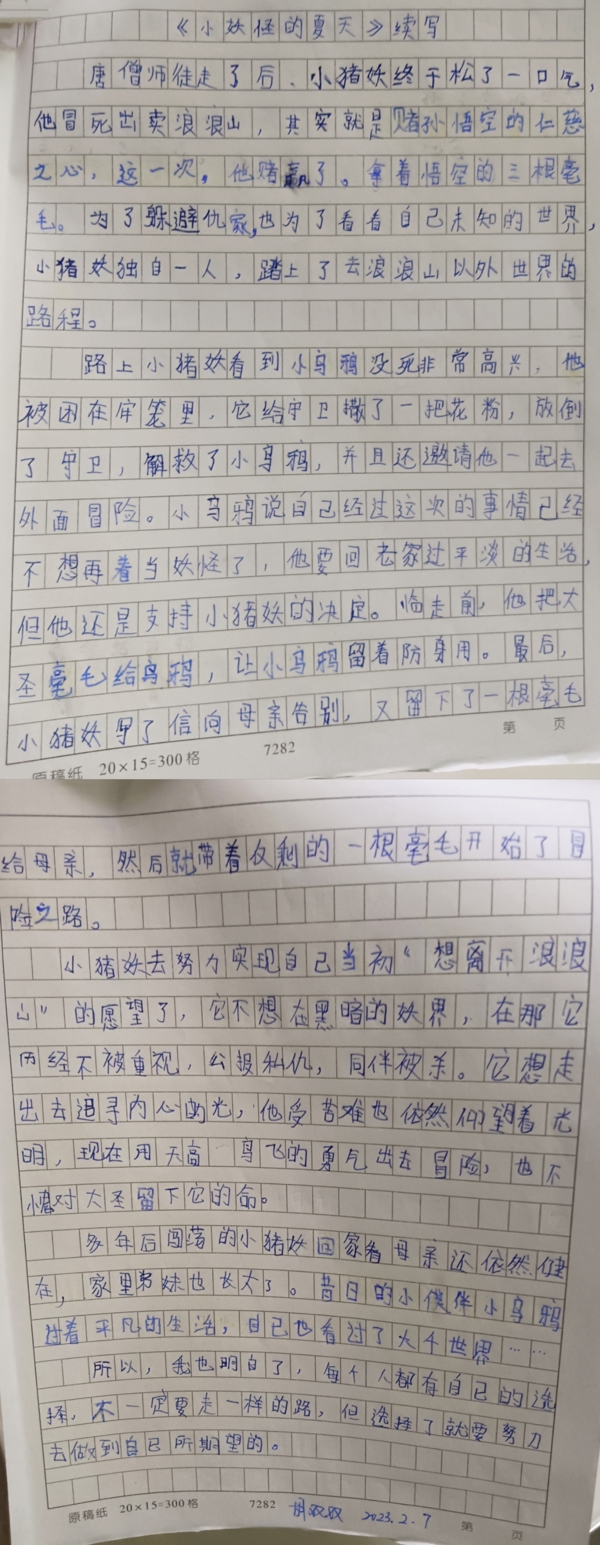 《小妖怪的夏天》续写
唐僧师徒走了后、小猪妖终于松了一口气,
他冒死出卖浪浪山，其实就是赌孙悟空的仁慈
之心，这一次，他赌赢了。拿着悟空的三根毫
毛。为了躲避仇家,也为了看看自己未知的世界,
小猪妖独自一人，踏上了去浪浪山以外世界的
路程。
路上小猪妖看到小乌鸦没死非常高兴，他
被困在牢笼里，它给守卫撒了一把花粉，放倒
了守卫，解救了小乌鸦，并且还邀请他一起去
外面冒险。小乌鸦说自己经过这次的事情已经
不想再着当妖怪了，他要回老家过平淡的生活,
但他还是支持小猪妖的决定。临走前，他把大
圣毫毛给乌鸦，让小乌鸦留着防身用。最后，
小猪妖写了信向母亲告别，又留下了一根毫毛
原稿纸 20×15=300格 7282 第 页
给母亲，然后就带着仅剩的一根毫毛开始了冒
险之路。
小猪妖去努力实现自己当初“想离开浪浪
山”的愿望了，它不想在黑暗的妖界，在那它
历经不被重视，公报私仇，同伴被杀。它想走
出去追寻内心的光，他受苦难也依然仰望着光
明，现在用天高 鸟飞的勇气出去冒险，也不
愧对大圣留下它的命。
多年后闯荡的小猪妖回家看母亲还依然健
在，家里弟妹也长大了。昔日的小伙伴小乌鸦
过着平凡的生活，自己也看过了大千世界……
所以，我也明白了，每个人都有自己的选
择，不一定要走一样的路，但选择了就要努力
去做到自己所期望的。
原稿纸 20×15=300格 7282 胡双双 2023.2.7 第 页